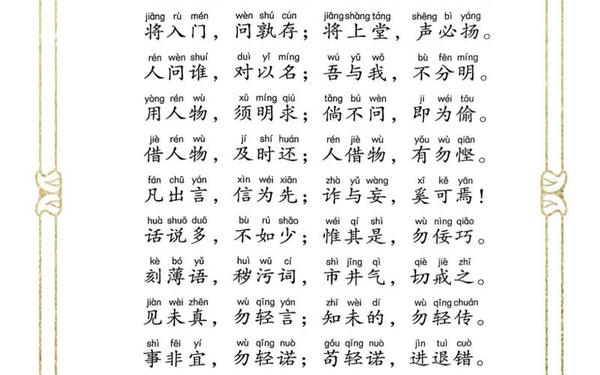 jiāng rù mén wèn shú cún jiāng shàng táng shēng bì yáng
将入门，问孰存；将上堂，声必扬。
rén wèn shuí duì yǐ míng wú yǔ wǒ bù fēn míng
人问谁，对以名；吾与我，不分明。
yòng rén wù xū míng qiú tǎng bú wèn jí wéi tōu
用人物，须明求；倘不问，即为偷。
jiè rén wù jí shí huán rén jiè wù yǒu wù qiān
借人物，及时还；人借物，有勿悭。
fán chū yán xìn wéi xiān zhà yǔ wàng xī kě yān
凡出言，信为先；诈与妄，奚可焉！
huà shuō duō bù rú shǎo wéi qí shì wù nìng qiǎo
话说多，不如少；惟其是，勿佞巧。
kè bó yǔ huì wū cí shì jǐng qì qiè jiè zhī
刻薄语，秽污词，市井气，切戒之。
jiàn wèi zhēn wù qīng yán zhī wèi dí wù qīng chuán
见未真，勿轻言；知未的，勿轻传。
shì fēi yí wù qīng nuò gǒu qīng nuò jìn tuì cuò
事非宜，勿轻诺；苟轻诺，进退错。